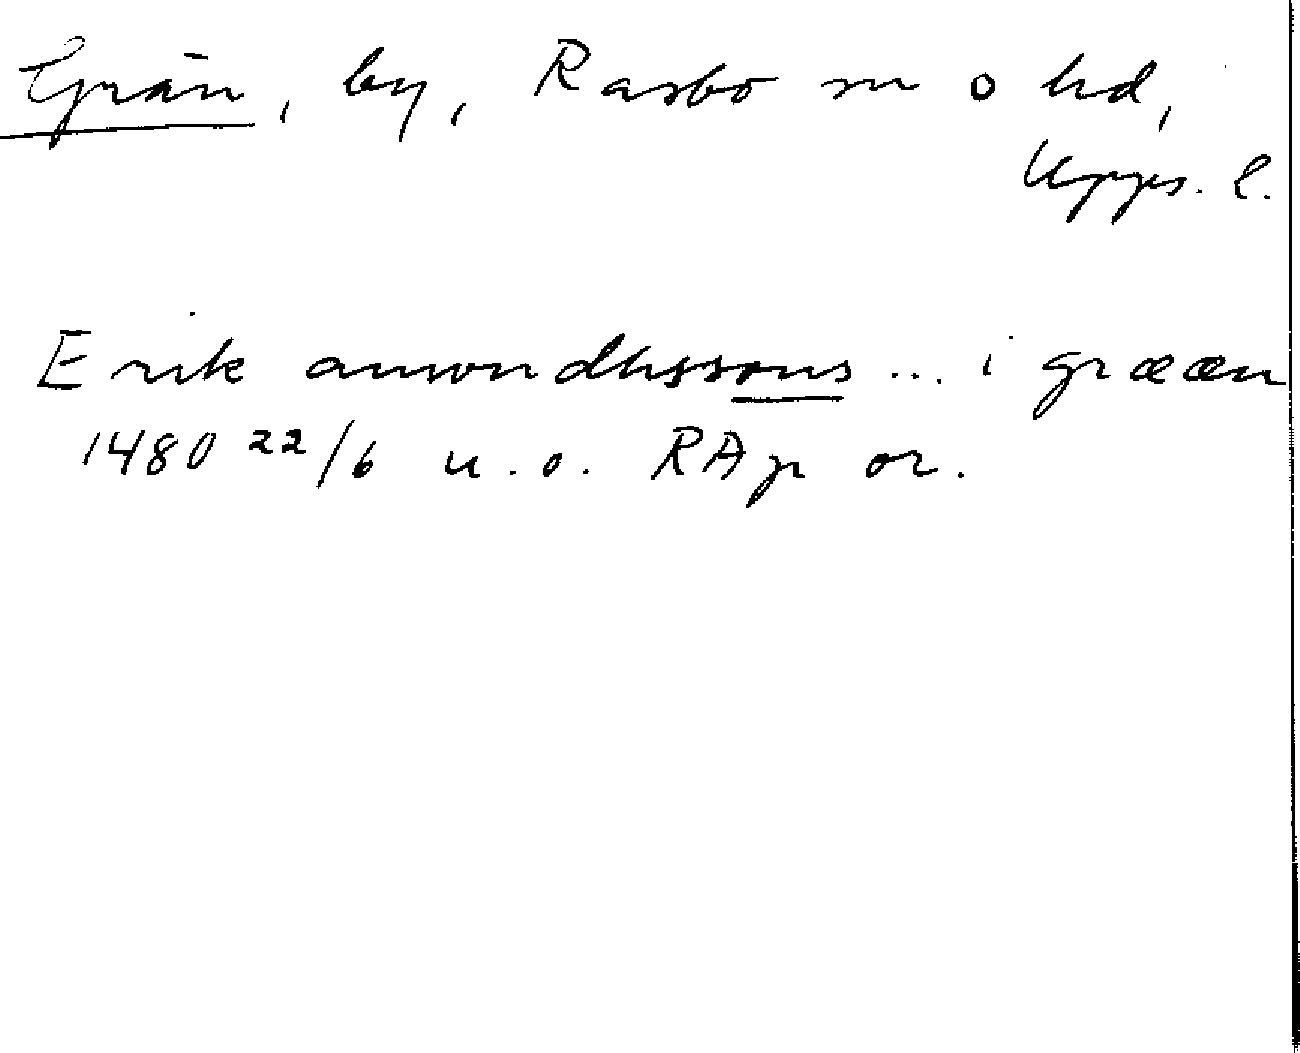 Grän, by, Rasbo sn o hd,
Upps. l.
Erik anwndhssons ... i grææn
1480 22/6 u.o. RAp or.